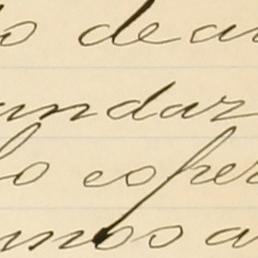 o de a
undar
lo esper
mos a